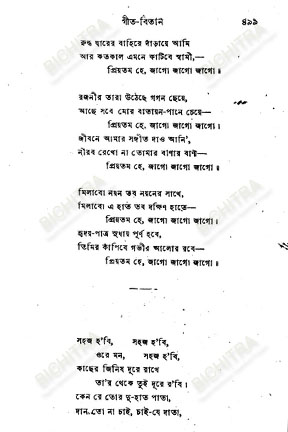 গীত-বিতান ৪৯৯
রুদ্ধ দ্বারের বাহিরে দাঁড়ায়ে আমি
আর কতকাল এমনে কাটিবে স্বামী,—
প্রিয়তম হে, জাগো জাগো জাগো।
রজনীর তারা উঠেছে গগন ছেয়ে,
আছে সবে মোর বাতায়ন-পানে চেয়ে—
প্রিয়তম হে, জাগো জাগো জাগো।
জীবনে আমার সঙ্গীত দাও আনি',
নীরব রেখো না তোমার বীণার বাণী—
প্রিয়তম হে, জাগো জাগো জাগো॥
মিলাবো নয়ন তব নয়নের সাথে,
মিলাবো এ হাত তব দক্ষিণ হাতে—
প্রিয়তম হে, জাগো জাগো জাগো।
হৃদয়-পাত্র সুধায় পূর্ণ হবে,
তিমির কাঁপিবে গভীর আলোর রবে—
প্রিয়তম হে, জাগো জাগো জাগো॥
সহজ হ'বি, সহজ হ'বি,
ওরে মন, সহজ হ'বি,
কাছের জিনিষ দূরে রাখে
তা'র থেকে তুই দূরে র'বি।
কেন রে তোর দু-হাত পাতা,
দান-তো না চাই, চাই-যে দাতা,
BICHITRA
BICHITRA
BICHITRA
BICHITRA